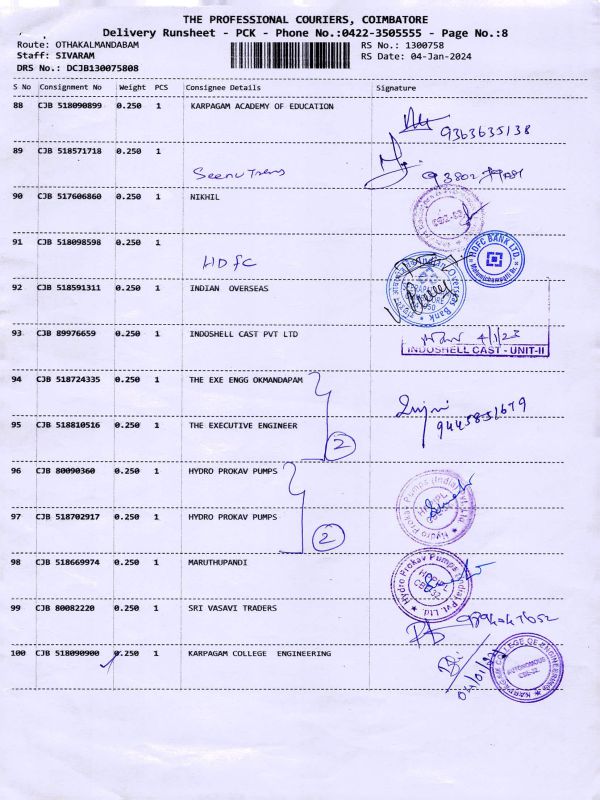 THE PROFESSIONAL COURIERS, COIMBATORE
Delivery Runsheet - PCK - Phone No.:0422-3505555 - Page No.:8
Route: OTHAKALMANDABAM RS No.: 1300758
Staff: SIVARAM RS Date: 04-Jan-2024
DRS No.: DCJB130075808
S No Consignment No Weight PCS Consignee Details Signature
88 CJB 518090899 0.250 1 KARPAGAM ACADEMY OF EDUCATION
9363635138
89 CJB 518571718 0.250 1
Seenu Trans
90 CJB 517606860 0.250 1 NIKHIL
91 CJB 518098598 0.250 1
HDFC
HDFC BANK LTD.
92 CJB 518591311 0.250 1 INDIAN OVERSEAS
Indian Overseas Bank
93 CJB 89976659 0.250 1 INDOSHELL CAST PVT LTD
4/1/23
INDOSHELL CAST - UNIT-II
94 CJB 518724335 0.250 1 THE EXE ENGG OKMANDAPAM
9445851679
95 CJB 518810516 0.250 1 THE EXECUTIVE ENGINEER
2
96 CJB 80090360 0.250 1 HYDRO PROKAV PUMPS
Hydro Prokav Pumps (India) Pvt. Ltd.
97 CJB 518702917 0.250 1 HYDRO PROKAV PUMPS
2
98 CJB 518669974 0.250 1 MARUTHUPANDI
Hydro Prokav Pumps (India) Pvt. Ltd.
99 CJB 80082220 0.250 1 SRI VASAVI TRADERS
100 CJB 518090900 0.250 1 KARPAGAM COLLEGE ENGINEERING
KARPAGAM COLLEGE OF ENGINEERING
AUTONOMOUS